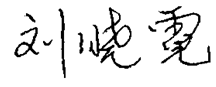 刘晓霓